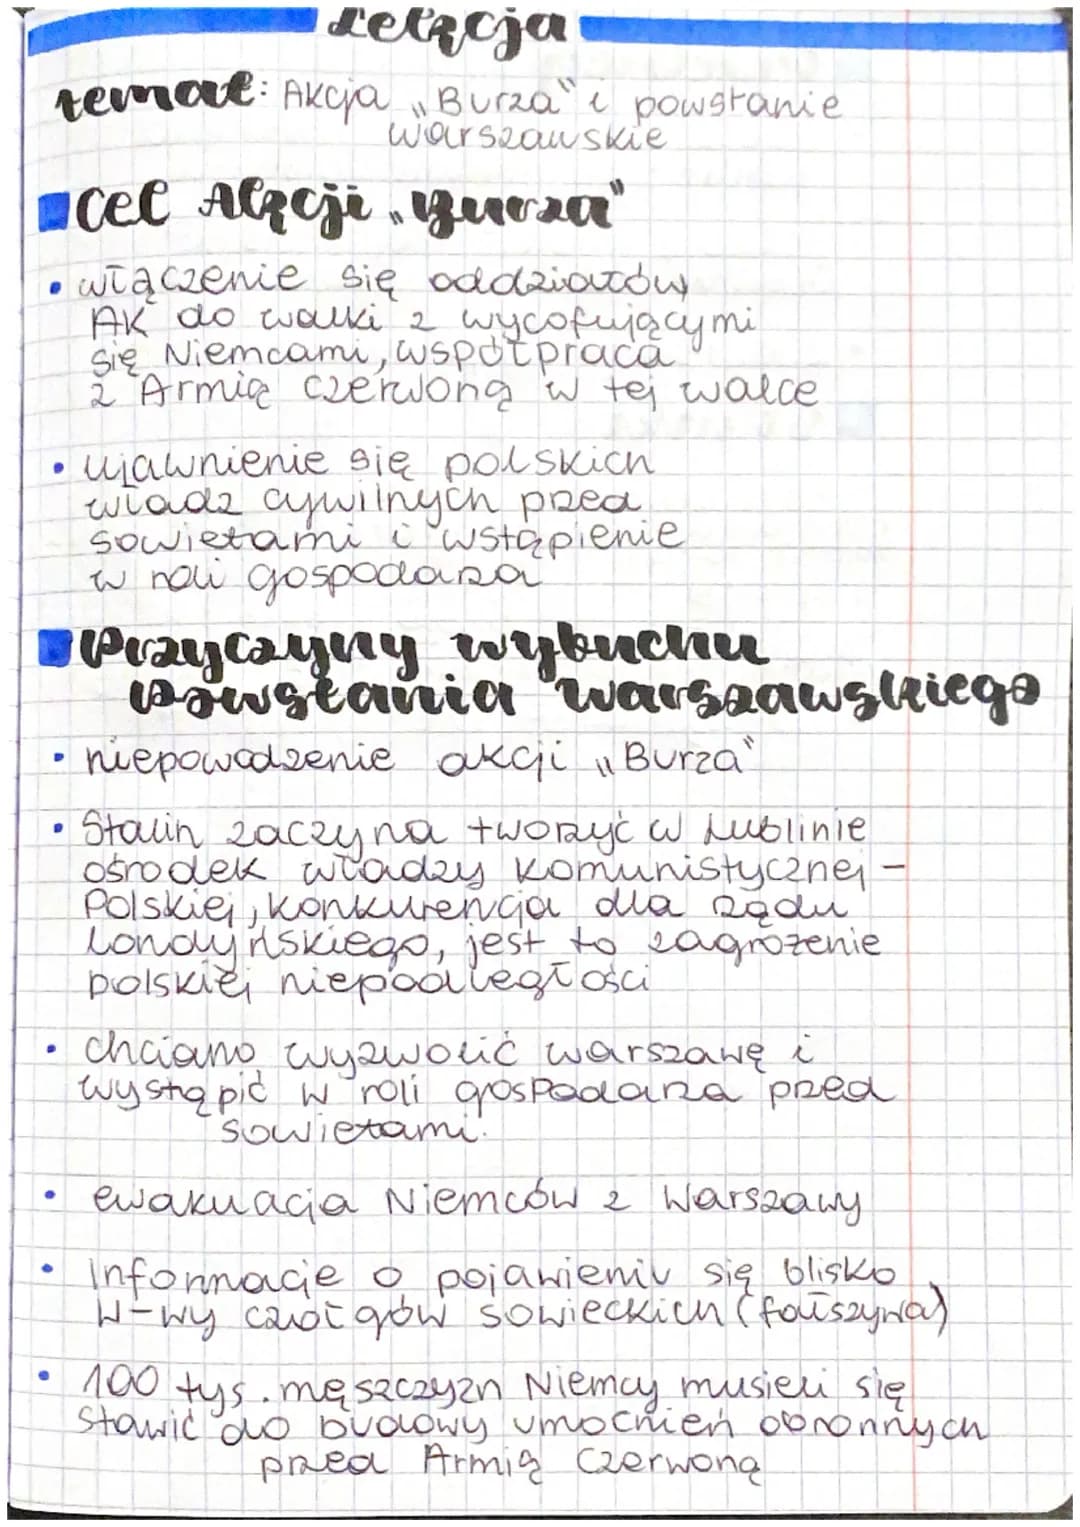 Lekcja
temat: Akcja „Burza" i powstanie
warszawskie
Cel Akcji „Burza"
• włączenie się oddziałów
AK do walki z wycofującymi
się Niemcami, współpraca
z Armią Czerwoną w tej walce
• ujawnienie się polskich
władz cywilnych przed
sowietami i wstąpienie
w roli gospodarza
Przyczyny wybuchu
Powstania Warszawskiego
• niepowodzenie akcji „Burza"
• Stalin zaczyna tworzyć w Lublinie
ośrodek władzy komunistycznej -
Polskiej, konkurencja dla rządu
Londyńskiego, jest to zagrożenie
polskiej niepodległości
• chciano wyzwolić warszawę i
wystąpić w roli gospodarza przed
sowietami.
• ewakuacja Niemców z Warszawy
• Informacje o pojawieniu się blisko
W-wy czołgów sowieckich (fałszywa)
• 100 tys. męszczyzn Niemcy musieli się
stawić do budowy umocnień obronnych
przed Armią Czerwoną